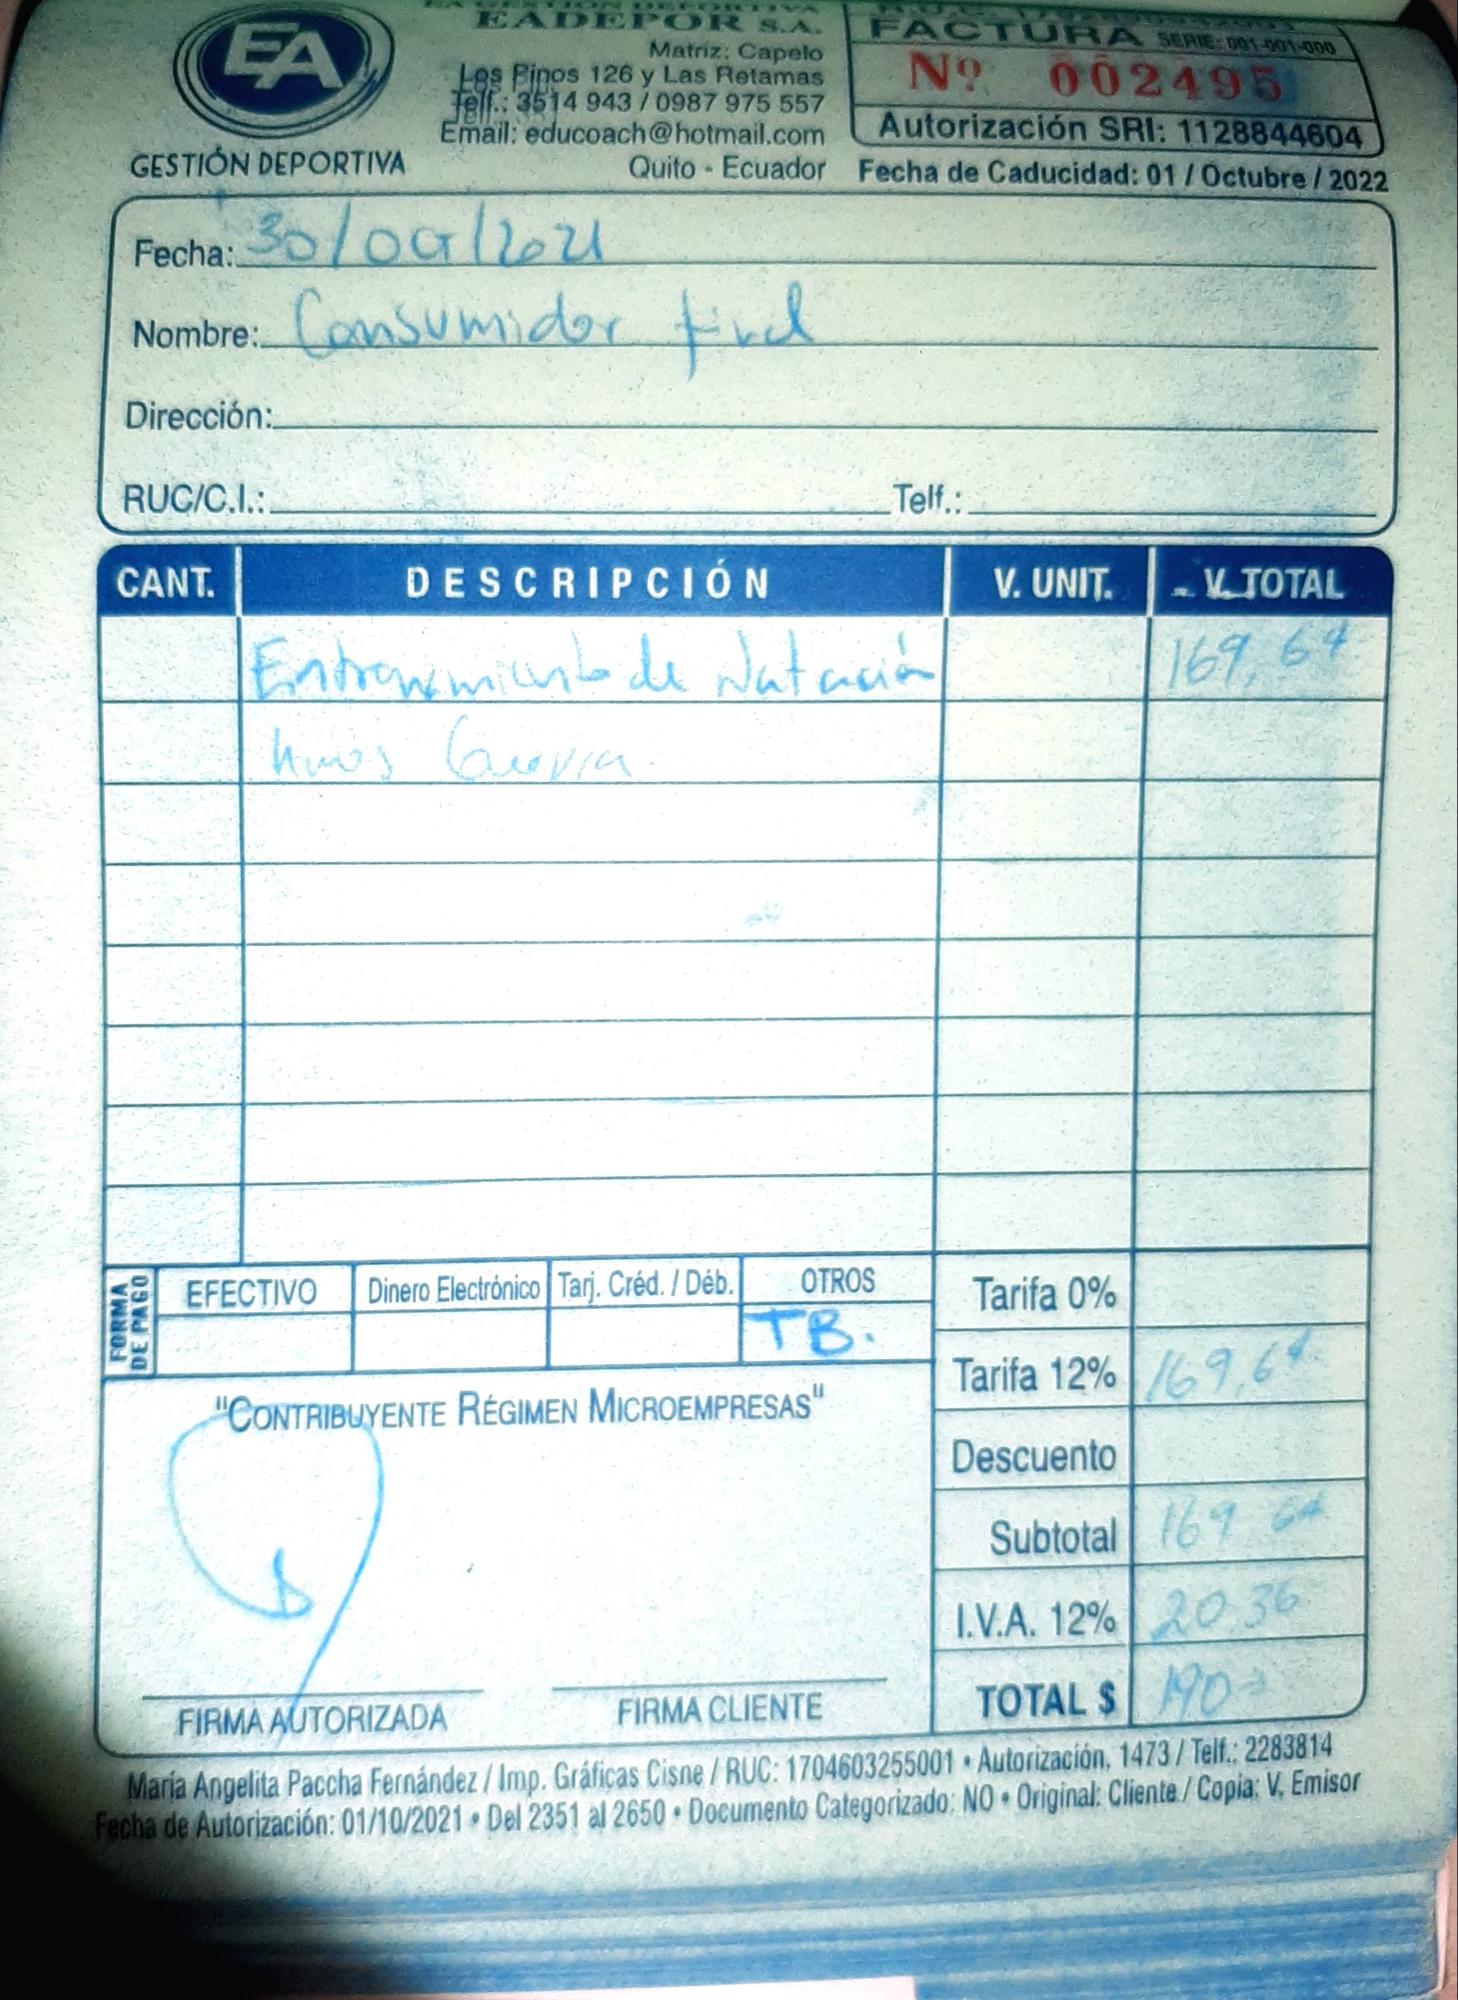 EA
GESTIÓN DEPORTIVA
EA GESTIÓN DEPORTIVA
EADEPOR S.A.
Matriz: Capelo
Los Pinos 126 y Las Retamas
Telf.: 3514 943 / 0987 975 557
Email: educoach@hotmail.com
Quito - Ecuador
FACTURA SERIE: 001-001-000
Nº 002495
Autorización SRI: 1128844604
Fecha de Caducidad: 01 / Octubre / 2022
Fecha: 30/oct/2021
Nombre: Consumidor final
Dirección:
RUC/C.I.: Telf.:
CANT. DESCRIPCIÓN V. UNIT. V. TOTAL
Entrenamiento de Natación 169,64
FORMA DE PAGO
EFECTIVO Dinero Electrónico Tarj. Créd. / Déb. OTROS
TB.
Tarifa 0%
Tarifa 12% 169,64
Descuento
Subtotal 169 64
I.V.A. 12% 20.36
TOTAL $ 190
"CONTRIBUYENTE RÉGIMEN MICROEMPRESAS"
FIRMA AUTORIZADA FIRMA CLIENTE
María Angelita Paccha Fernández / Imp. Gráficas Cisne / RUC: 1704603255001 • Autorización. 1473 / Telf.: 2283814
Fecha de Autorización: 01/10/2021 • Del 2351 al 2650 • Documento Categorizado: NO • Original: Cliente / Copia: V. Emisor